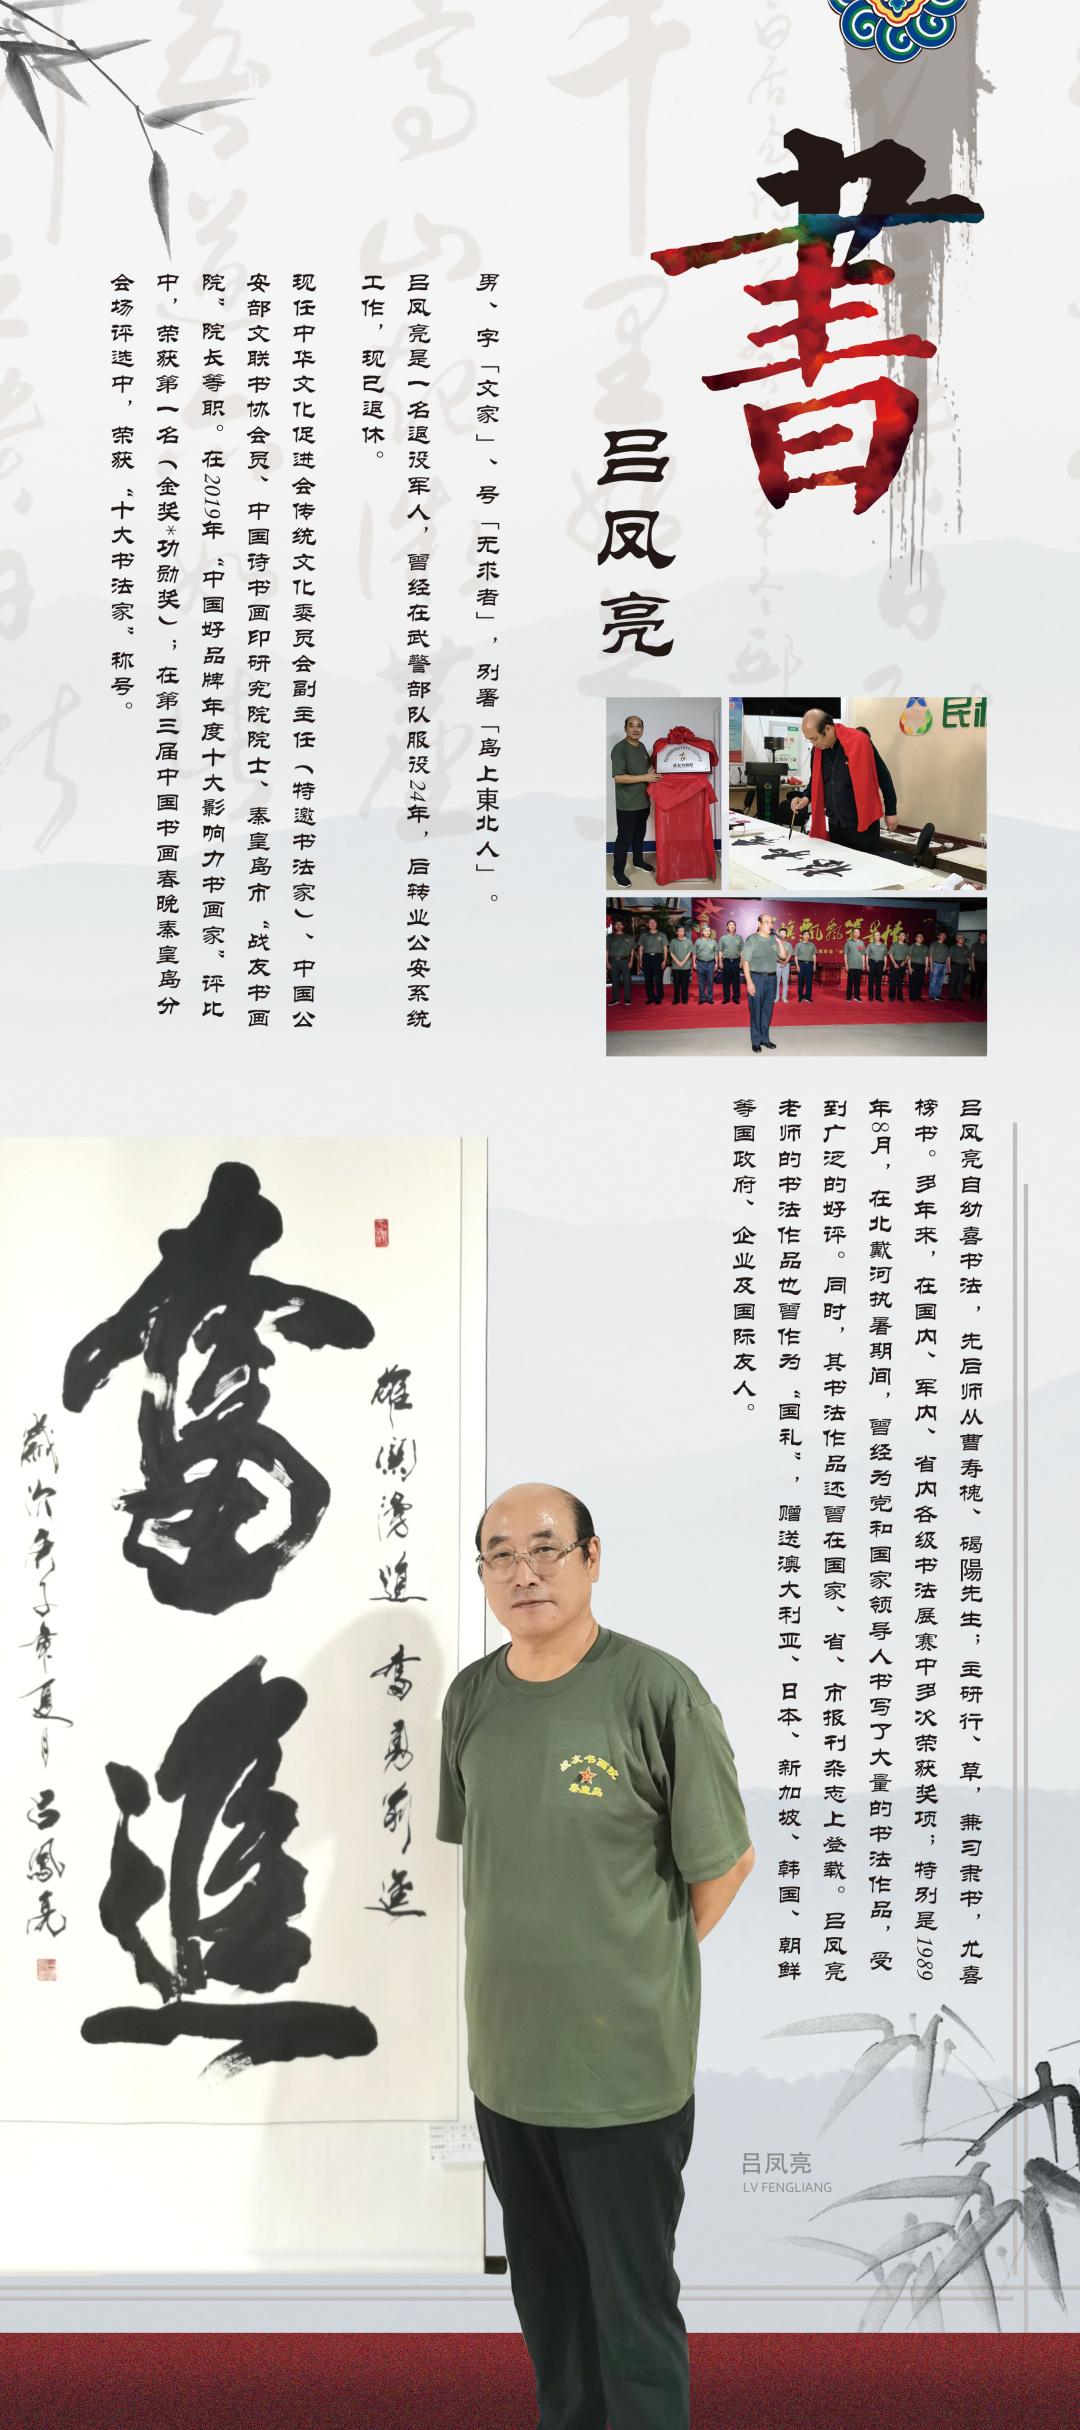 書
吕凤亮
男、字「文家」、号「无求者」，别署「岛上東北人」。
吕凤亮是一名退役军人，曾经在武警部队服役24年，后转业公安系统
工作，现已退休。
现任中华文化促进会传统文化委员会副主任（特邀书法家）、中国公
安部文联书协会员、中国诗书画印研究院院士、秦皇岛市“战友书画
院”院长等职。在2019年“中国好品牌年度十大影响力书画家”评比
中，荣获第一名（金奖*功勋奖）；在第三届中国书画春晚秦皇岛分
会场评选中，荣获“十大书法家”称号。
吕凤亮自幼喜书法，先后师从曹寿槐、碣陽先生；主研行、草，兼习隶书，尤喜
榜书。多年来，在国内、军内、省内各级书法展赛中多次荣获奖项；特别是1989
年8月，在北戴河执暑期间，曾经为党和国家领导人书写了大量的书法作品，受
到广泛的好评。同时，其书法作品还曾在国家、省、市报刊杂志上登载。吕凤亮
老师的书法作品也曾作为“国礼”，赠送澳大利亚、日本、新加坡、韩国、朝鲜
等国政府、企业及国际友人。
雄关漫道 奮勇前進
奮進
歲次庚子年夏月 吕鳳亮
战友书画院
秦皇岛
吕凤亮
LV FENGLIANG